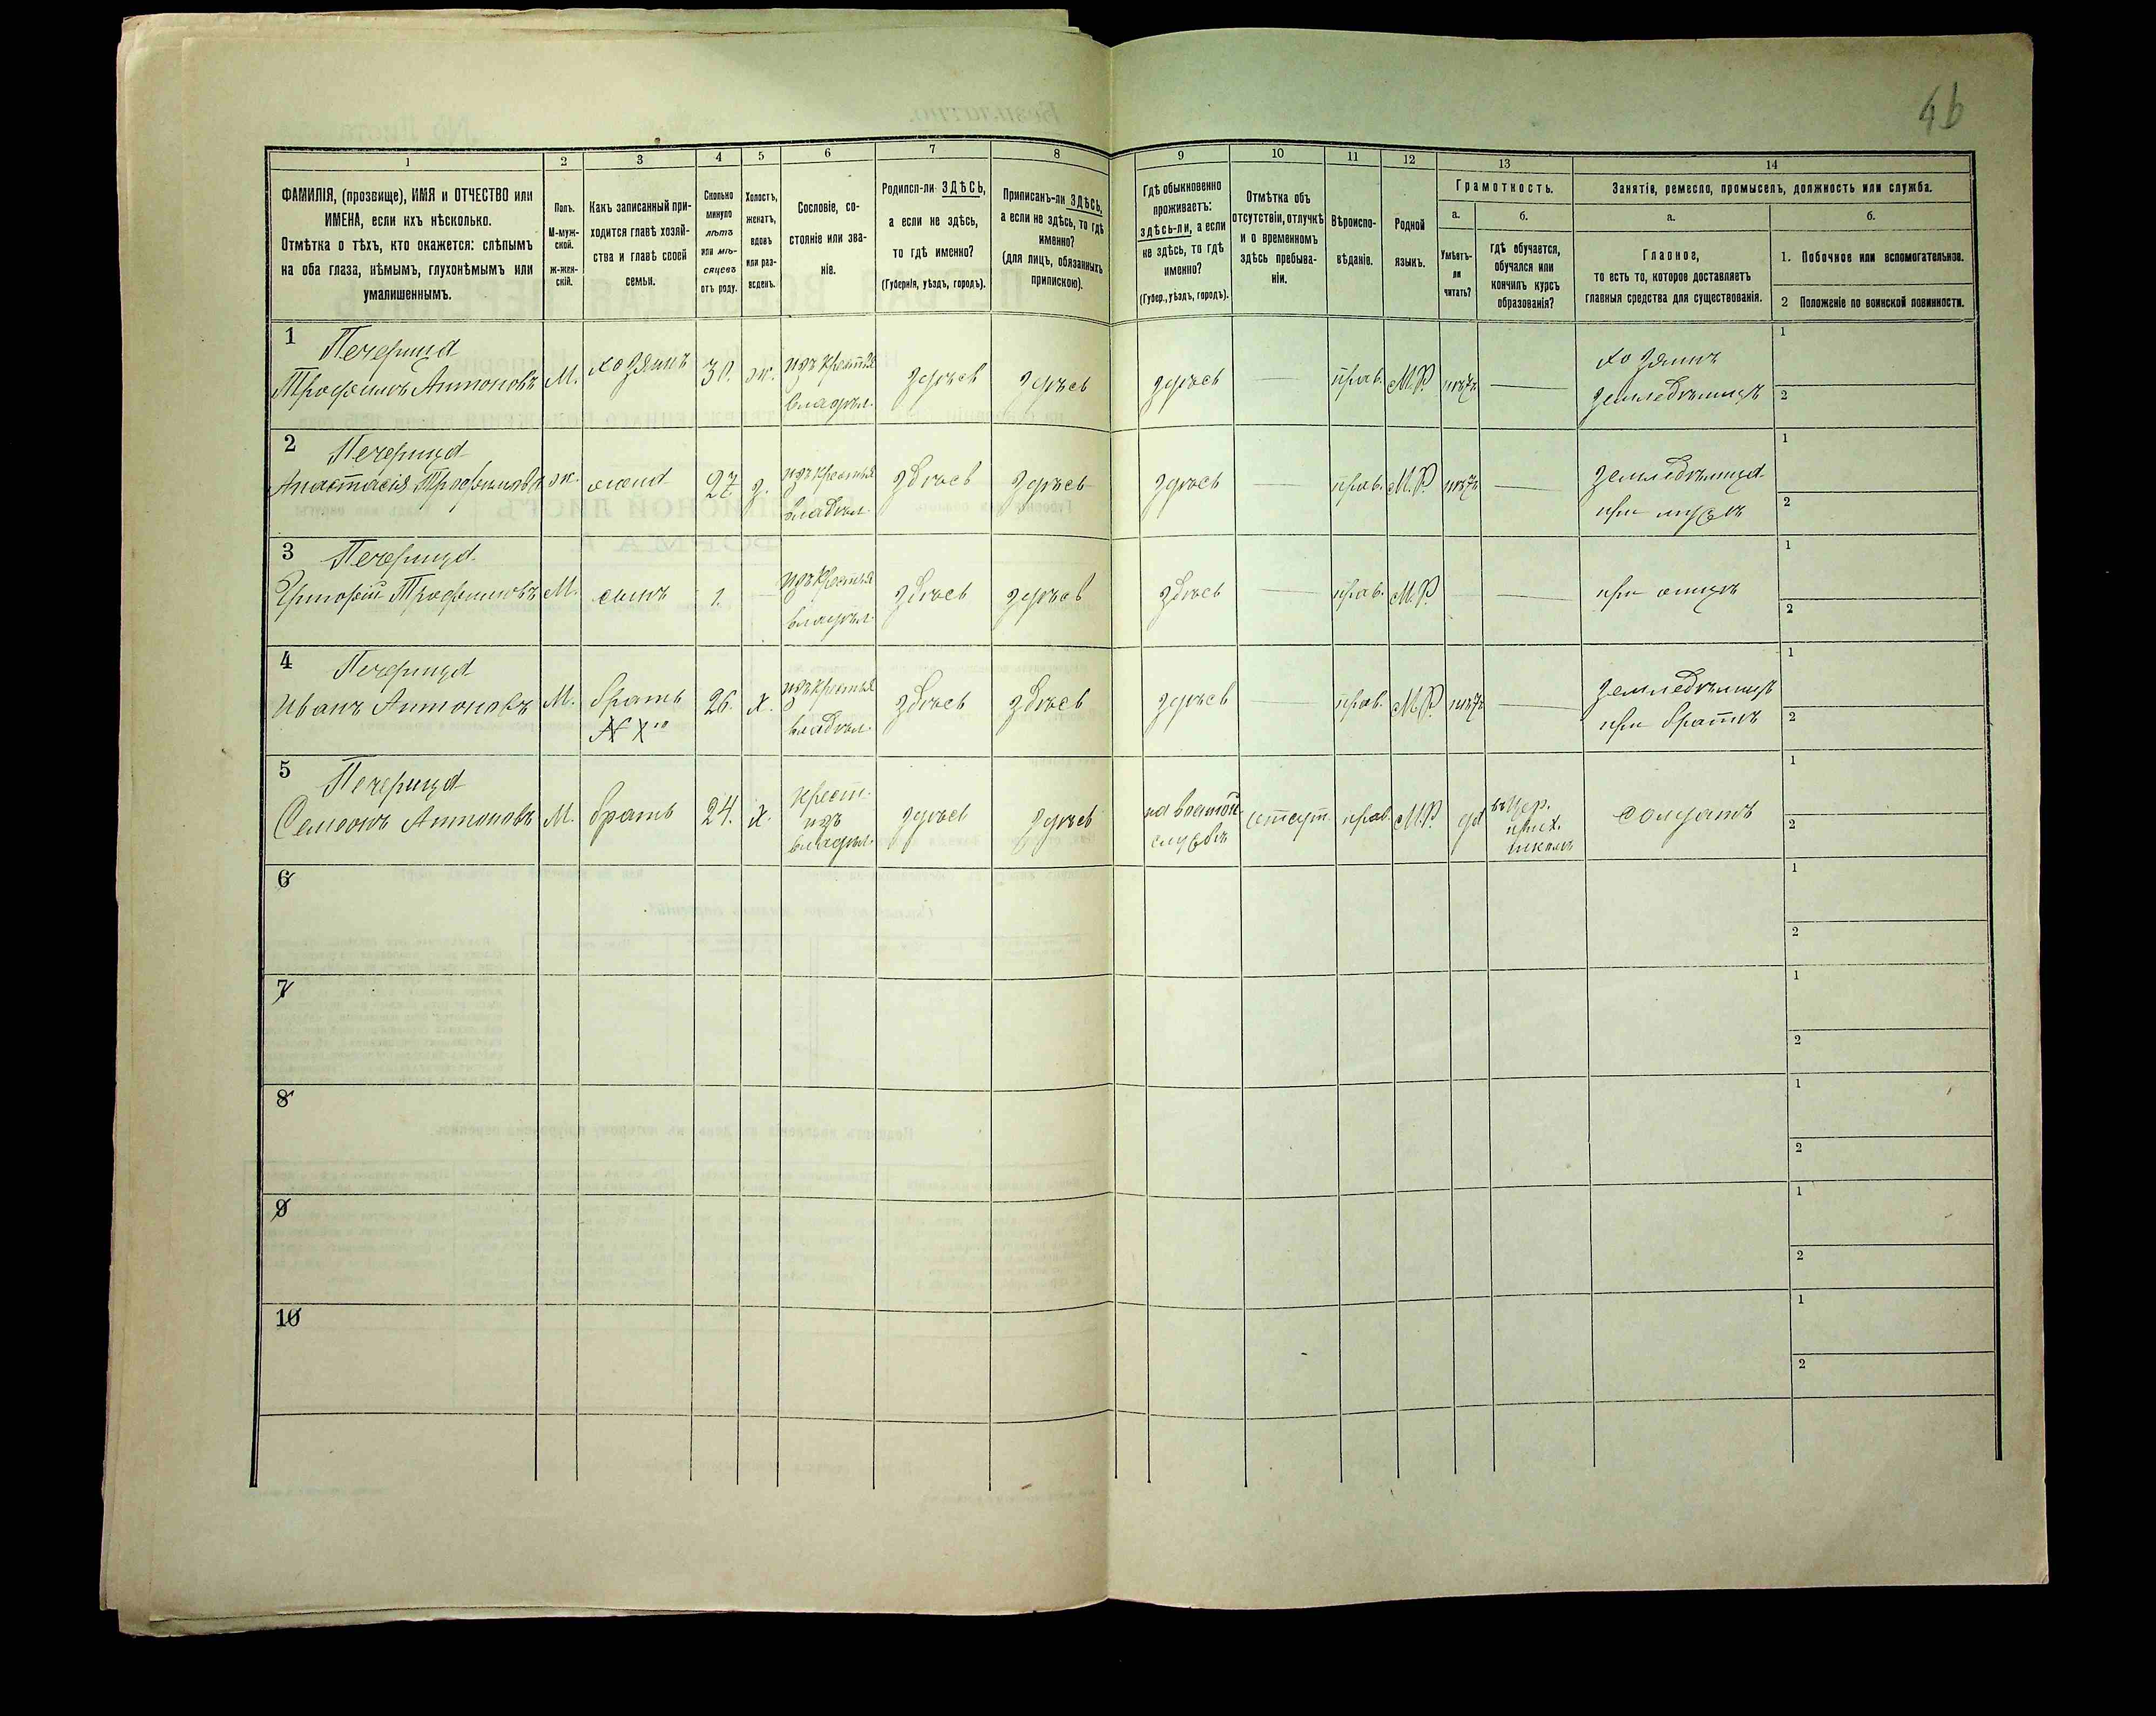 46
1 2 3 4 5 6 7 8 9 10 11 12 13 14
ФАМИЛІЯ, (прозвище), ИМЯ и ОТЧЕСТВО или
ИМЕНА, если ихъ нѣсколько.
Отмѣтка о тѣхъ, кто окажется: слѣпымъ
на оба глаза, нѣмымъ, глухонѣмымъ или
умалишеннымъ.
Полъ.
М-муж-
ской.
ж-жен-
скій.
Какъ записанный при-
ходится главѣ хозяй-
ства и главѣ своей
семьи.
Сколько
минуло
лѣтъ
или мѣ-
сяцевъ
отъ роду.
Холостъ,
женатъ,
вдовъ
или раз-
веденъ.
Сословіе, со-
стояніе или зва-
ніе.
Родился-ли ЗДѢСЬ,
а если не здѣсь,
то гдѣ именно?
(Губернія, уѣздъ, городъ).
Приписанъ-ли ЗДѢСЬ,
а если не здѣсь, то гдѣ
именно?
(для лицъ, обязанныхъ
припискою).
Гдѣ обыкновенно
проживаетъ:
здѣсь-ли, а если
не здѣсь, то гдѣ
именно?
(Губер., уѣздъ, городъ).
Отмѣтка объ
отсутствіи, отлучкѣ
и о временномъ
здѣсь пребыва-
ніи.
Вѣроиспо-
вѣданіе.
Родной
языкъ.
Грамотность.
а.
Умѣетъ-
ли
читать?
б.
гдѣ обучается,
обучался или
кончилъ курсъ
образованія?
Занятія, ремесло, промыселъ, должность или служба.
а.
Главное,
то есть то, которое доставляетъ
главныя средства для существованія.
б.
1. Побочное или вспомогательное.
2 Положеніе по воинской повинности.
1 Печерица
Трофимъ Антоновъ М. хозяинъ 30. ж. изъ крестья владѣл. здѣсь здѣсь здѣсь — прав. М.Р. нѣтъ — хозяинъ земледѣлецъ
1
2
2 Печерица
Анастасія Трофимова ж. жена 27. з. изъ крестья владѣл. здѣсь здѣсь здѣсь — прав. М.Р. нѣтъ — земледѣлица при мужѣ
1
2
3 Печерица
Григорій Трофимовъ М. сынъ 1. — изъ крестья владѣл. здѣсь здѣсь здѣсь — прав. М.Р. — — при отцѣ
1
2
4 Печерица
Иванъ Антоновъ М. братъ 26. х. изъ крестья владѣл. здѣсь здѣсь здѣсь — прав. М.Р. нѣтъ — земледѣлецъ при братѣ
1
2
5 Печерица
Семеонъ Антоновъ М. братъ 24. х. крест. изъ владѣл. здѣсь здѣсь на воен­ной службѣ отсут. прав. М.Р. да въ цер. прих. школѣ солдатъ
1
2
6
1
2
7
1
2
8
1
2
9
1
2
10
1
2